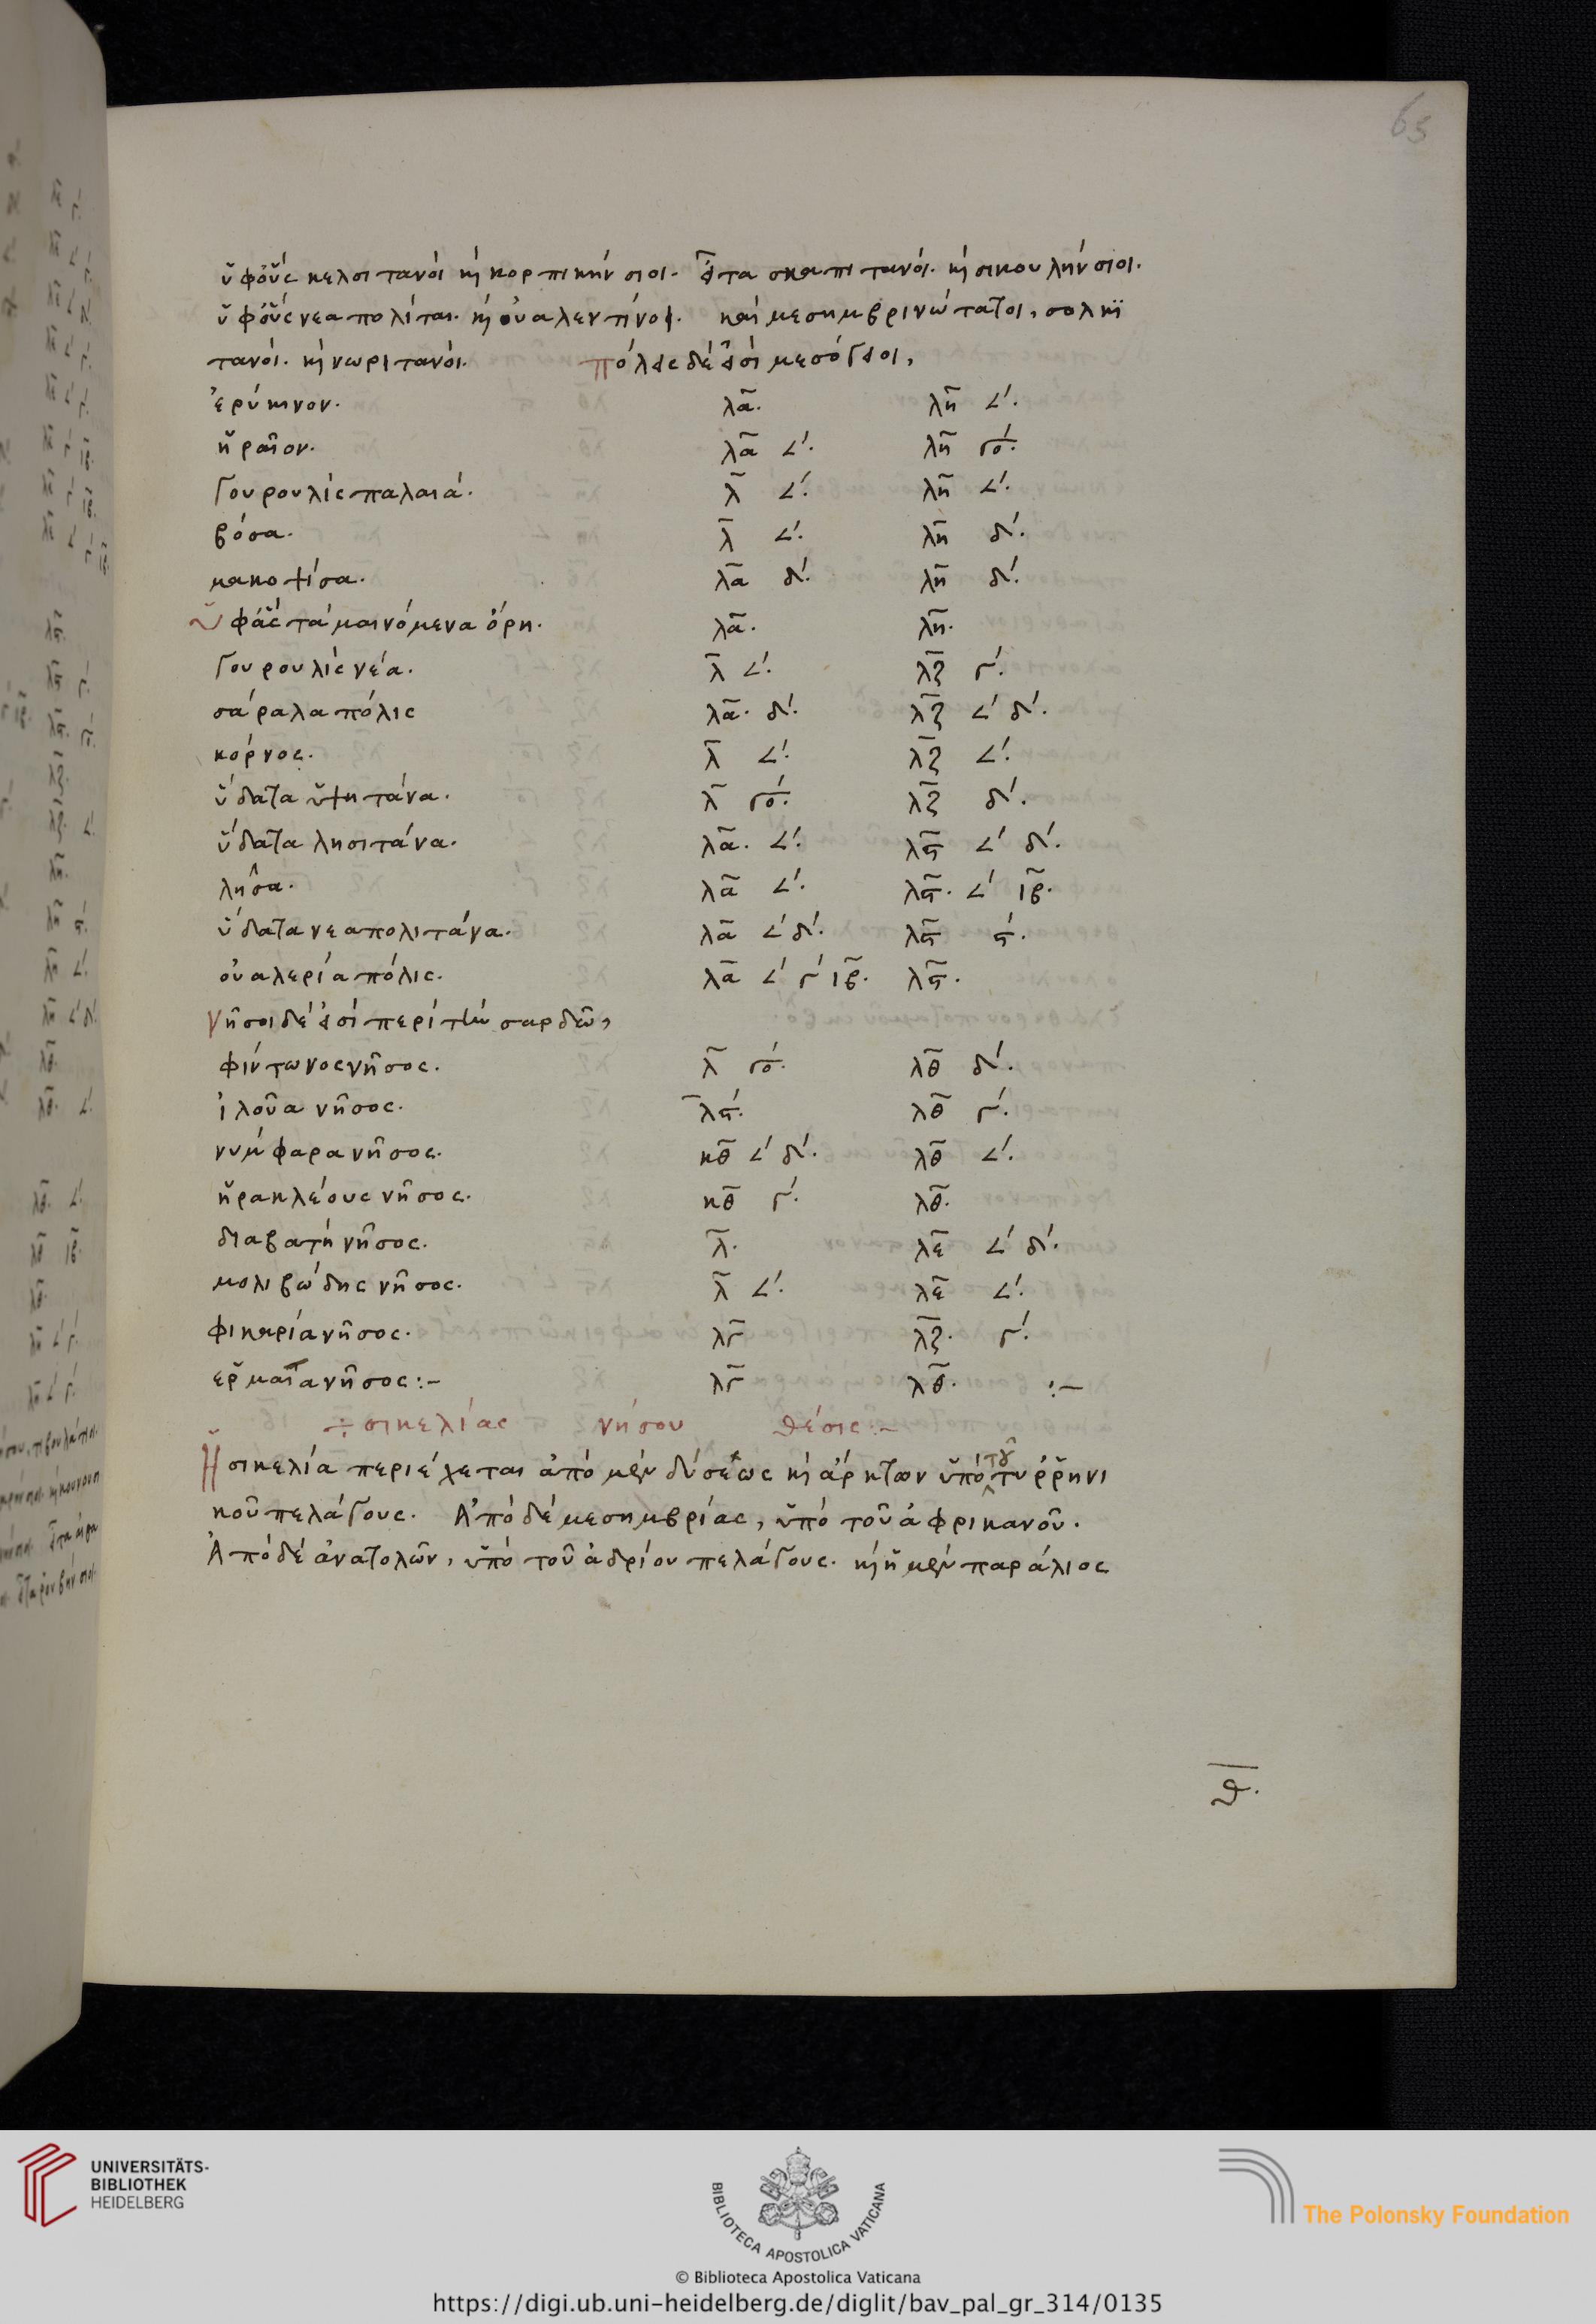 63
ὑφ' οὓς κελσιτανοὶ κὴ κορπικήνσιοι. εἶτα σκαπιτανοί. κὴ σικουλήνσιοι.
ὑφ' οὓς νεαπολίται. κὴ οὐαλεντῖνοι. καὶ μεσημβρινώτατοι, σολκϊ
τανοί. κὴ νωριτανοί. πόλεις δέ εἰσὶ μεσόγειοι,
ἐρύκινον. λα. λη 𐅵.
ἥραῖον. λα 𐅵. λη γο.
γουρουλὶς παλαιά. λ 𐅵. λη 𐅵.
βόσα. λ 𐅵. λη δ.
μακοψίσα. λα δ. λη δ.
ὑφ' ἃς τὰ μαινόμενα ὄρη. λα. λη.
γουρουλὶς νέα. λ 𐅵. λζ γ.
σάραλα πόλις λα. δ. λζ 𐅵 δ.
κόρνος. λ 𐅵. λζ 𐅵.
ὕδατα ὑψιτάνα. λ γο. λζ δ.
ὕδατα λησιτάνα. λα. 𐅵. λϛ 𐅵 δ.
λῆσα. λα 𐅵. λϛ. 𐅵 ιβ.
ὕδατα νεαπολιτάνα. λα 𐅵 δ. λϛ ϛ.
οὐαλερία πόλις. λα 𐅵 γ ιβ. λϛ.
νῆσοι δέ εἰσὶ περὶ τὴν σαρδῶ,
φίντωνος νῆσος. λ γο. λθ δ.
ἰλοῦα νῆσος. λϛ. λθ γ.
νυμφαρα νῆσος. κθ 𐅵 δ. λθ 𐅵.
ἡρακλέους νῆσος. κθ γ. λθ.
διαβατὴ νῆσος. λ. λε 𐅵 δ.
μολιβώδης νῆσος. λ 𐅵. λε 𐅵.
φικαρία νῆσος. λγ λζ. γ.
ἑρμαῖα νῆσος :- λγ λθ. :-
÷ σικελίας νήσου θέσις :-
Ἡ σικελία περιέχεται ἀπὸ μὲν δύσεως κὴ ἄρκτων ὑπὸ τοῦ τυρῥηνι
κοῦ πελάγους. Ἀπὸ δὲ μεσημβρίας, ὑπὸ τοῦ ἀφρικανοῦ.
Ἀπὸ δὲ ἀνατολῶν, ὑπὸ τοῦ ἀδρίου πελάγους. κὴ ἡ μὲν παράλιος
θ.
UNIVERSITÄTS-
BIBLIOTHEK
HEIDELBERG
BIBLIOTECA APOSTOLICA VATICANA
The Polonsky Foundation
© Biblioteca Apostolica Vaticana
https://digi.ub.uni-heidelberg.de/diglit/bav_pal_gr_314/0135